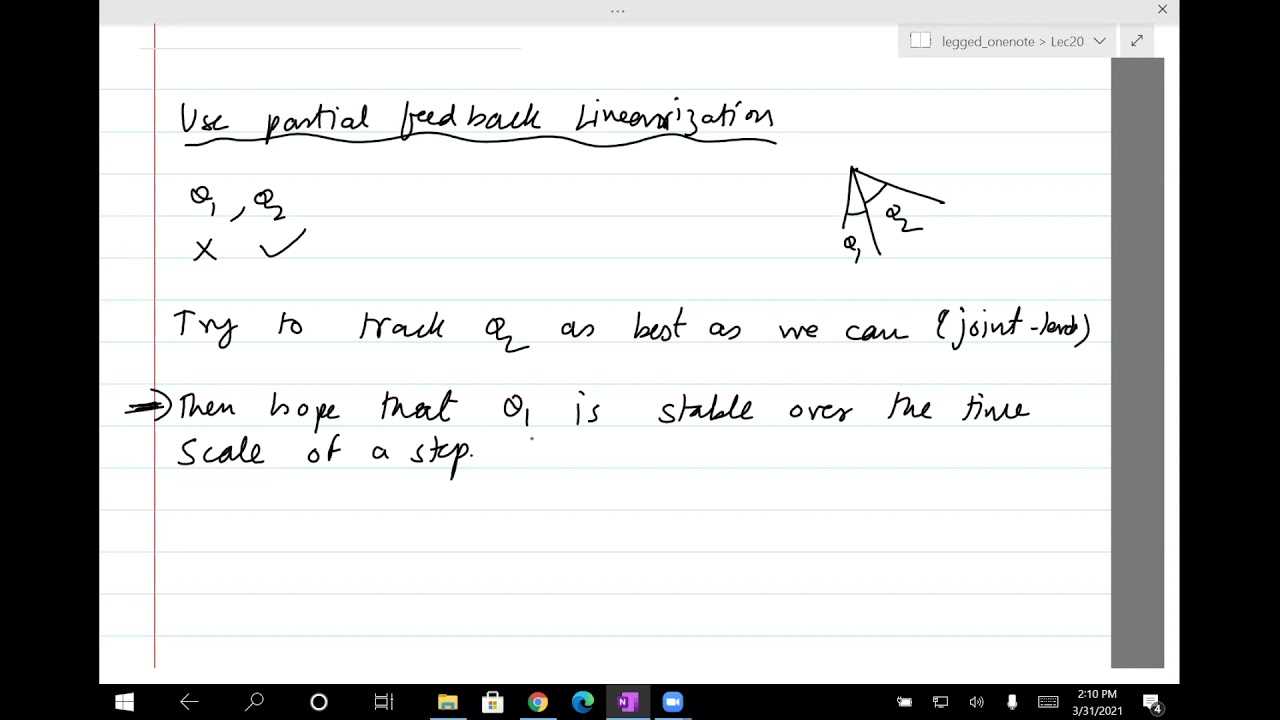 legged_onenote > Lec20
Use partial feedback Linearization
θ₁, θ₂
X ✓
θ₁
θ₂
Try to track θ₂ as best as we can (joint-level)
⇒ Then hope that θ₁ is stable over the time
scale of a step.
2:10 PM
3/31/2021
4